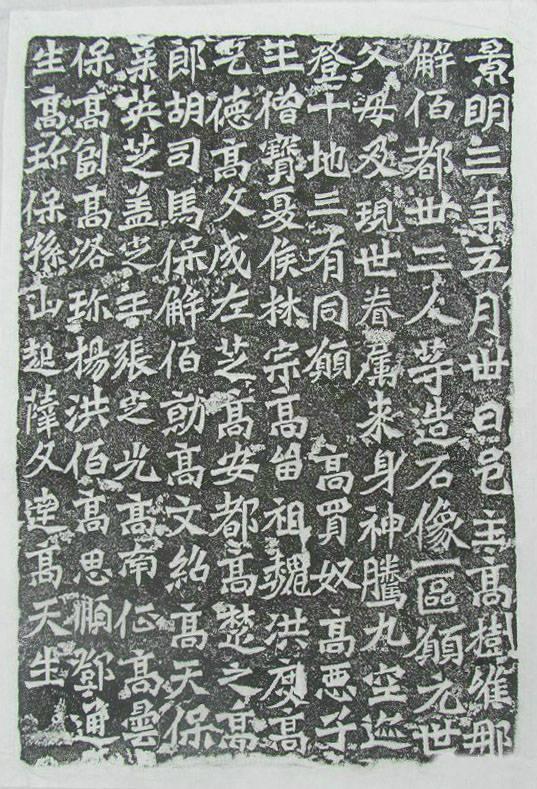 景明三年五月卅日邑主高樹維那
解佰都卅二人等造石像一區願元世
父母及現世眷屬来身神騰九空迹
登十地三有同願高買奴高惡子
王僧寶夏侯林宗高留祖魏洪度高
乞德高文成左芝高安都高楚之高
郎胡司馬保解佰勍高文紹高天保
蓋定王張定光高南征高曇
保高副高洛珎楊洪佰高思順鄧通
生高珎保孫山起薩文達高天生